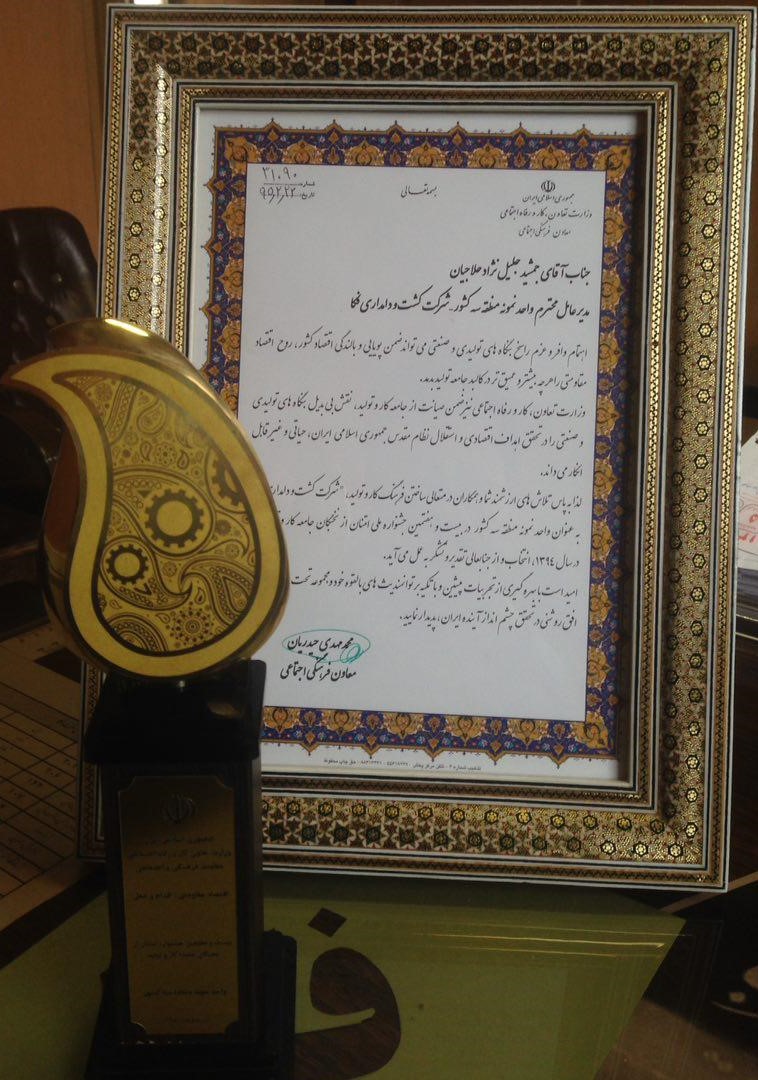 بسمه تعالی
جمهوری اسلامی ایران
وزارت تعاون، کار و رفاه اجتماعی
معاون فرهنگی اجتماعی
شماره ۲۱۰۹۰
تاریخ ۹۵,۲,۲۲
جناب آقای جمشید جلیل نژاد حلاجیان
مدیر عامل محترم واحد نمونه منطقه سه کشور - شرکت کشت و دامداری فکا
اهتمام وافر و عزم راسخ بنگاه های تولیدی و صنعتی می تواند ضمن پویایی و بالندگی اقتصاد کشور، روح اقتصاد
مقاومتی را هرچه بیشتر و عمیق تر در کالبد جامعه تولید بدمد.
وزارت تعاون، کار و رفاه اجتماعی نیز ضمن صیانت از جامعه کار و تولید، نقش بی بدیل بنگاه های تولیدی
و صنعتی را در تحقق اهداف اقتصادی و استقلال نظام مقدس جمهوری اسلامی ایران، حیاتی و غیر قابل
انکار می داند.
لذا به پاس تلاش های ارزشمند شما و همکاران در متعالی ساختن فرهنگ کار و تولید، "شرکت کشت و دامداری
به عنوان واحد نمونه منطقه سه کشور در بیست و هفتمین جشنواره ملی امتنان از نخبگان جامعه کار و
در سال ۱۳۹۴، انتخاب و از جنابعالی تقدیر و تشکر به عمل می آید.
امید است با بهره گیری از تجربیات پیشین و با تکیه بر توانمندیث های بالقوه خود و مجموعه تحت
افق روشنی در تحقق چشم انداز آینده ایران، پدیدار نمایید.
محمد مهدی حیدریان
معاون فرهنگی اجتماعی
جمهوری اسلامی
وزارت تعاون کار و رفاه اجتماعی
معاونت فرهنگی و اجتماعی
اقتصاد مقاومتی، اقدام و عمل
بیست و هفتمین جشنواره امتنان از
نخبگان جامعه کار و تولید
واحد نمونه منطقه سه کشور
ف